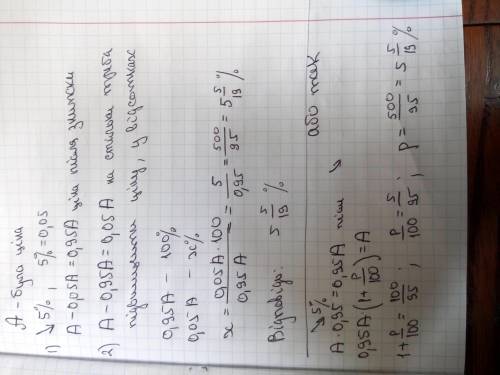 А - була ціна
1) ↘ 5%, 5% = 0,05
А - 0,05А = 0,95А ціна після знижки
2) А - 0,95А = 0,05А на стільки треба
підвищити ціну, у відсотках
0,95А - 100%
0,05А - x%
x = 0,05А·100/0,95А = 5/0,95 = 500/95 = 5 5/19 %
Відповідь: 5 5/19 %
або так
↘ 5%
А · 0,95 = 0,95А після ↘
0,95А(1 + p/100) = А
1 + p/100 = 100/95 ; p/100 = 5/95 ; p = 500/95 = 5 5/19 %